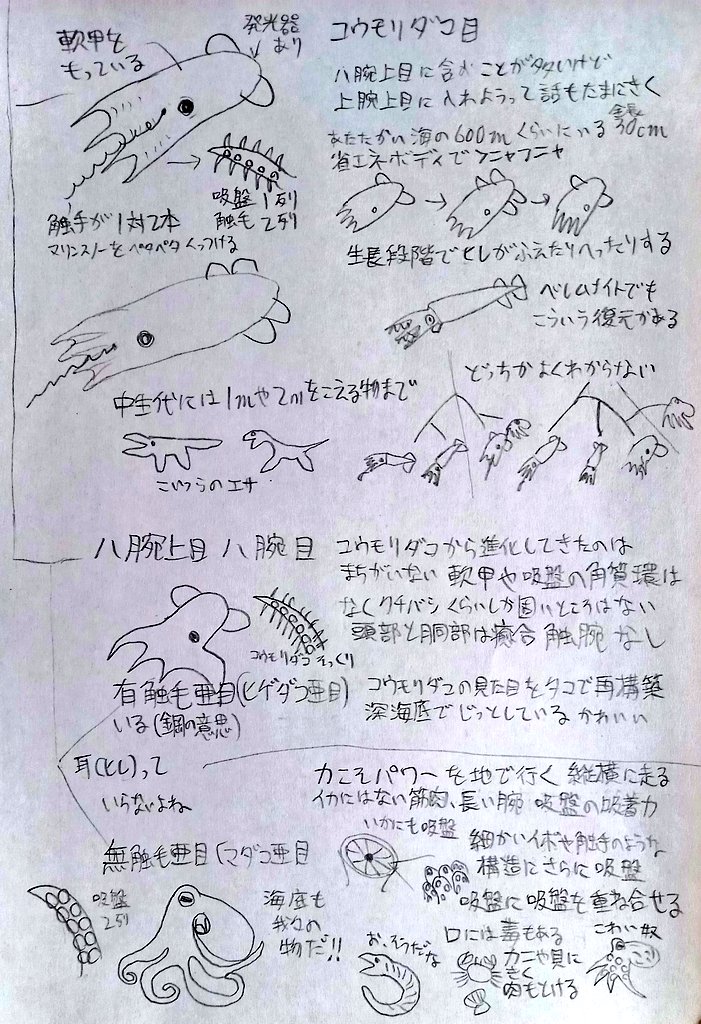 コウモリダコ目
発光器
あり
軟甲を
もっている
八腕上目に含むことが多いけど
上腕上目に入れようって話もたまにきく
あたたかい海の600mくらいにいる 全長30cm
省エネボディでフニャフニャ
吸盤1列
触毛2列
触手が1対2本
マリンスノーをペタペタくっつける
生長段階でヒレがふえたりへったりする
ベレムナイトでも
こういう復元がある
どっちかよくわからない
中生代には1mや2mをこえる物まで
こいつらのエサ
八腕上目 八腕目
コウモリダコから進化してきたのは
まちがいない 軟甲や吸盤の角質環は
なくクチバシくらいしか固いところはない
頭部と胴部は癒合 触腕なし
コウモリダコそっくり
有触毛亜目(ヒゲダコ亜目)
いる(鋼の意思)
コウモリダコの見た目をタコで再構築
深海底でじっとしている かわいい
耳(ヒレ)って
いらないよね
力こそパワーを地で行く 縦横に走る
イカにはない筋肉、長い腕 吸盤の吸着力
いかにも吸盤
細かいイボや触手のような
構造にさらに吸盤
吸盤に吸盤を重ね合せる
無触毛亜目(マダコ亜目
吸盤
2列
海底も
我々の
物だ!!
お、そうだな
口には毒もある
カニや貝に
きく
肉もとける
こわい奴